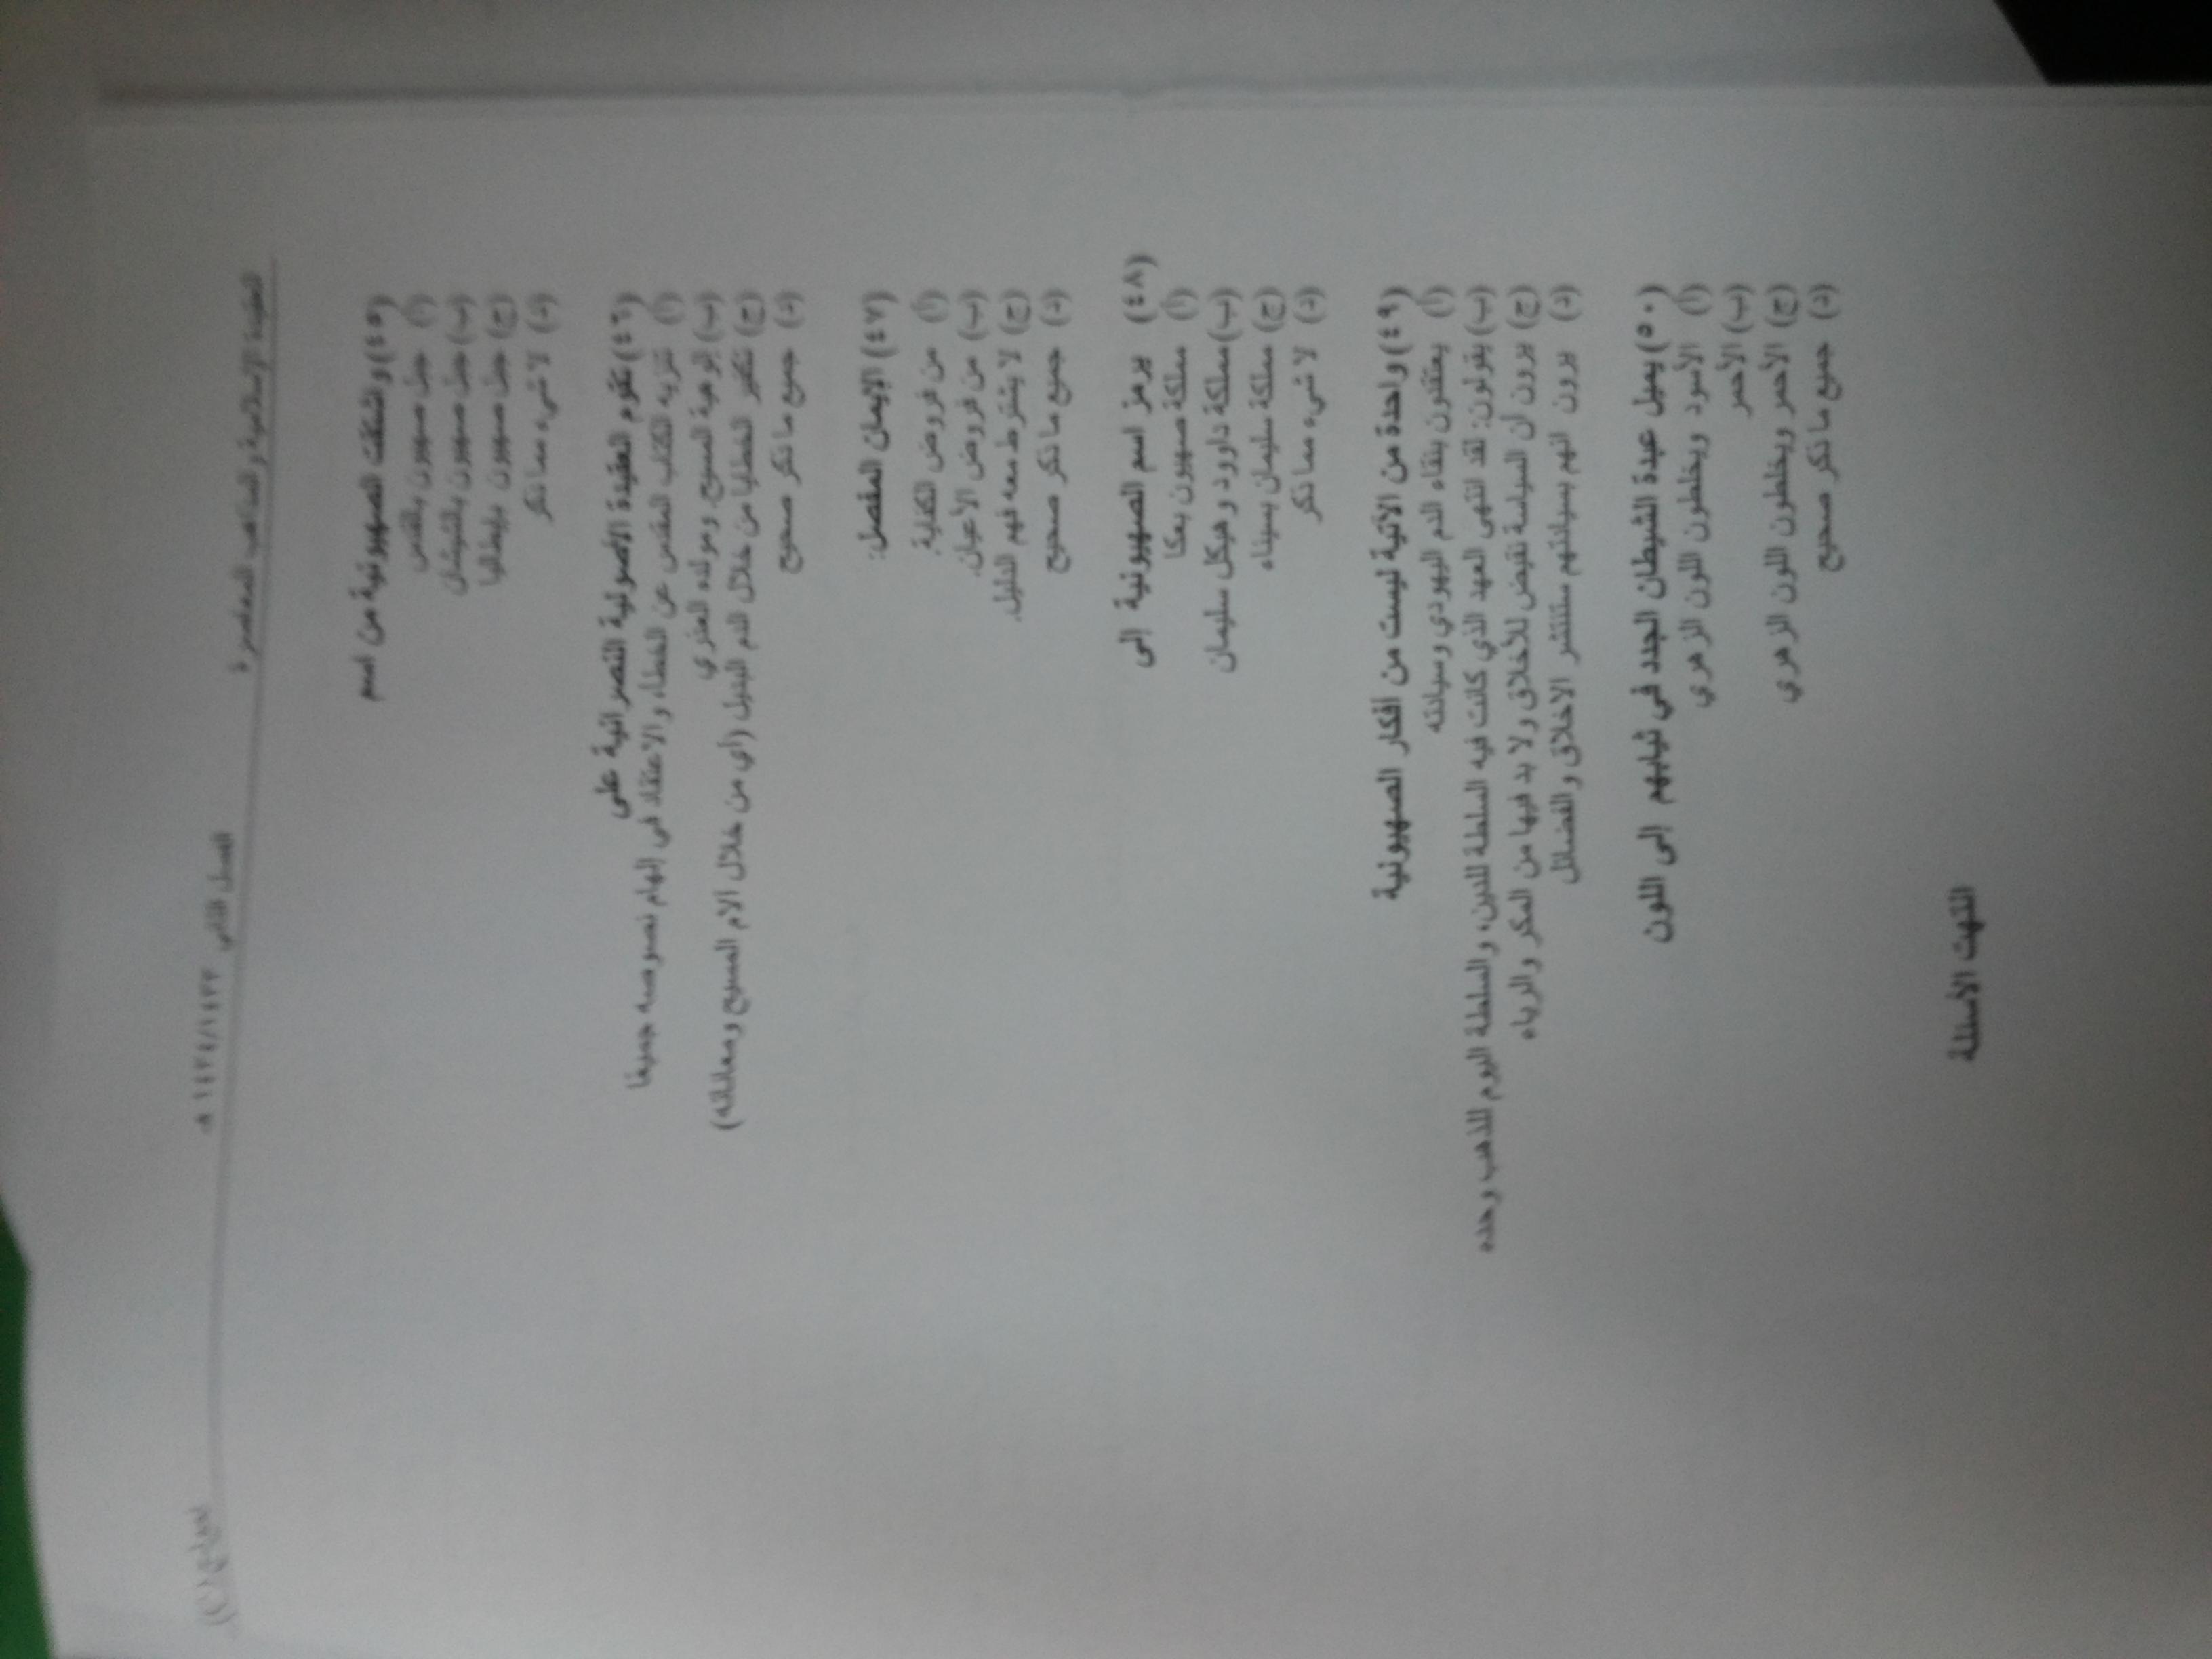 العقيدة الإسلامية والمذاهب المعاصرة الفصل الثاني ١٤٣٤/١٤٣٣ هـ نموذج ( )
(٤٥) واشتقت الصهيونية من اسم
(أ) جبل صهيون بالقدس
(ب) جبل صهيون بالشيشان
(ج) جبل صهيون بإيطاليا
(د) لا شيء مما ذكر
(٤٦) تقوم العقيدة الأصولية النصرانية على
(أ) تنزيه الكتاب المقدس عن الخطاء والاعتقاد في إلهام نصوصه جميعا
(ب) ألوهية المسيح، ومولده العذري
(ج) تكفير الخطايا من خلال الدم البديل (أي من خلال آلام المسيح ومعاناته)
(د) جميع ما ذكر صحيح
(٤٧) الإيمان المفصل:
(أ) من فروض الكفاية.
(ب) من فروض الأعيان.
(ج) لا يشترط معه فهم الدليل.
(د) جميع ما ذكر صحيح
(٤٨) يرمز اسم الصهيونية إلى
(أ) مملكة صهيون بعكا
(ب) مملكة داوود وهيكل سليمان
(ج) مملكة سليمان بسيناء
(د) لا شيء مما ذكر
(٤٩) واحدة من الآتية ليست من أفكار الصهيونية
(أ) يعتقدون بنقاء الدم اليهودي وسيادته
(ب) يقولون: لقد انتهى العهد الذي كانت فيه السلطة للدين، والسلطة اليوم للذهب وحده
(ج) يرون أن السياسة نقيض للأخلاق ولا بد فيها من المكر والرياء
(د) يرون انهم بسيادتهم ستنتشر الاخلاق والفضائل
(٥٠) يميل عبدة الشيطان الجدد في ثيابهم إلى اللون
(أ) الأسود ويخلطون اللون الزهري
(ب) الأحمر
(ج) الأحمر ويخلطون اللون الزهري
(د) جميع ما ذكر صحيح
انتهت الأسئلة